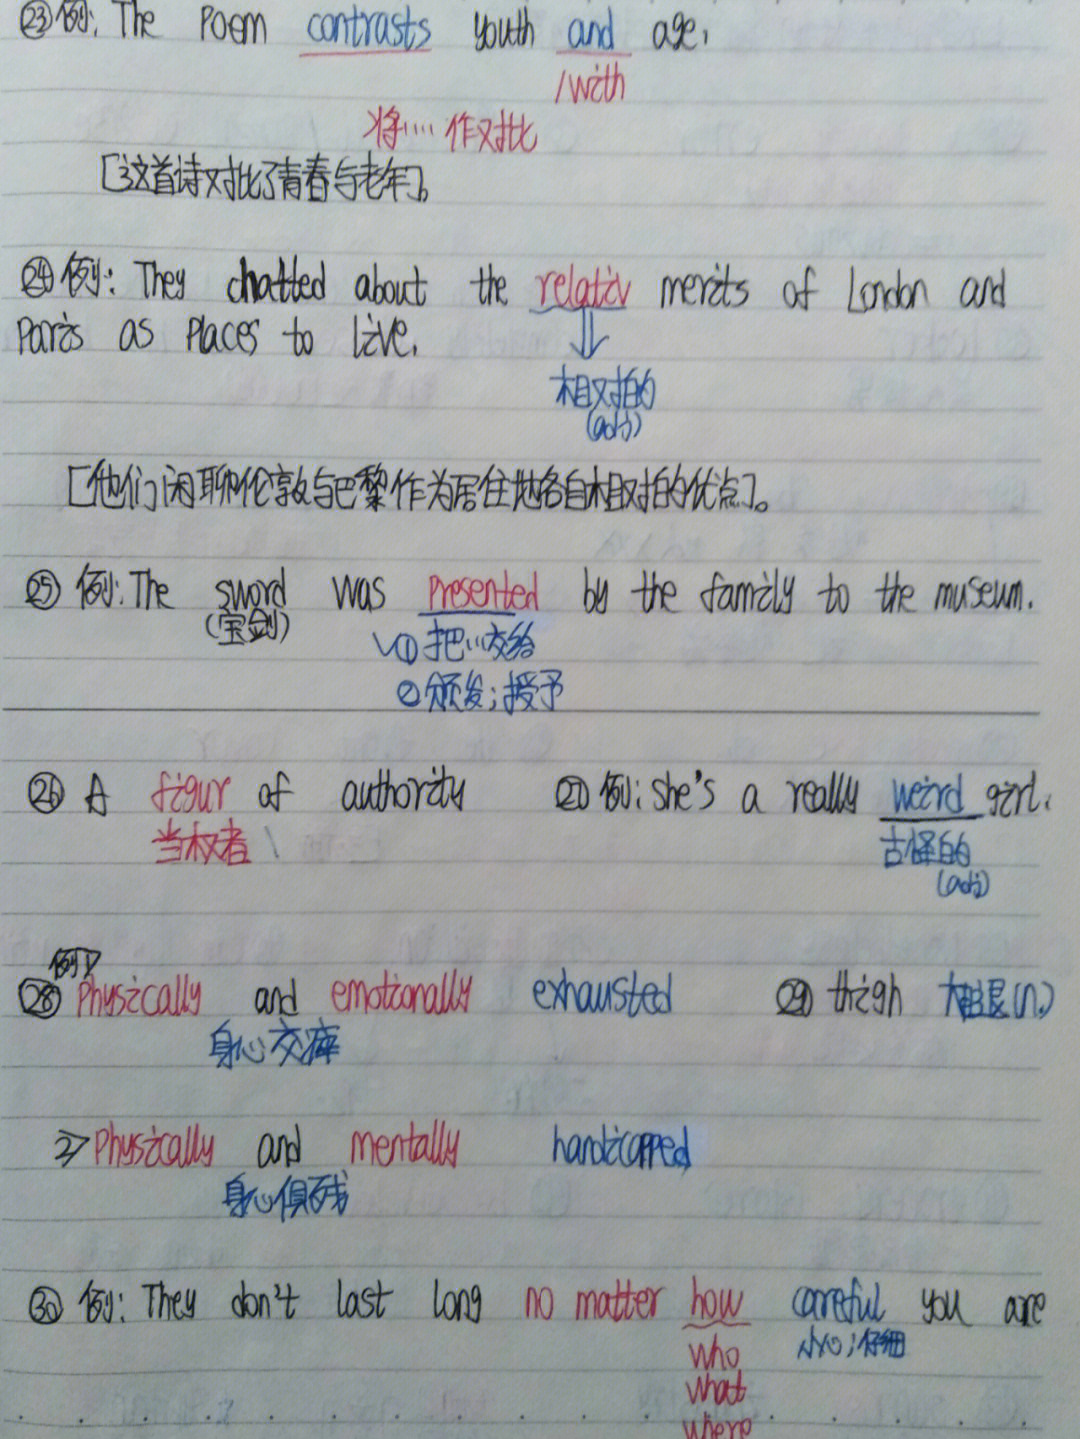 ㉓例: The Poem contrasts youth and age.
/with
将…作对比
[这首诗对比了青春与老年]。
㉔例: They chatted about the relativ merits of London and
Paris as Places to Live.
相对拍的
(adj)
[他们闲聊伦敦与巴黎作为居住地各自相对拍的优点]。
㉕例: The sword was Presented by the family to the museum.
(宝剑)
√①把…交给
②颁发;授予
㉖ A figur of authority ㉗例: she's a really weird girl.
当权者
古怪的
(adj)
例1>
㉘Physically and emotionally exhausted ㉙ thigh 大腿(n.)
身心交瘁
2>Physically and mentally handicapped
身心俱残
㉚例: They don't last long no matter how careful you are
小心;仔细
who
what
where